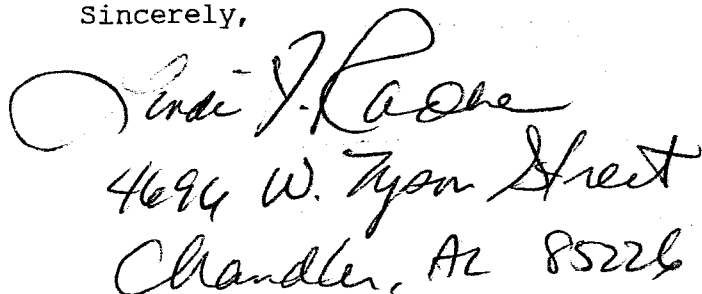 Sincerely,
Linda F. Radke
4696 W. Tyson Street
Chandler, AZ 85226